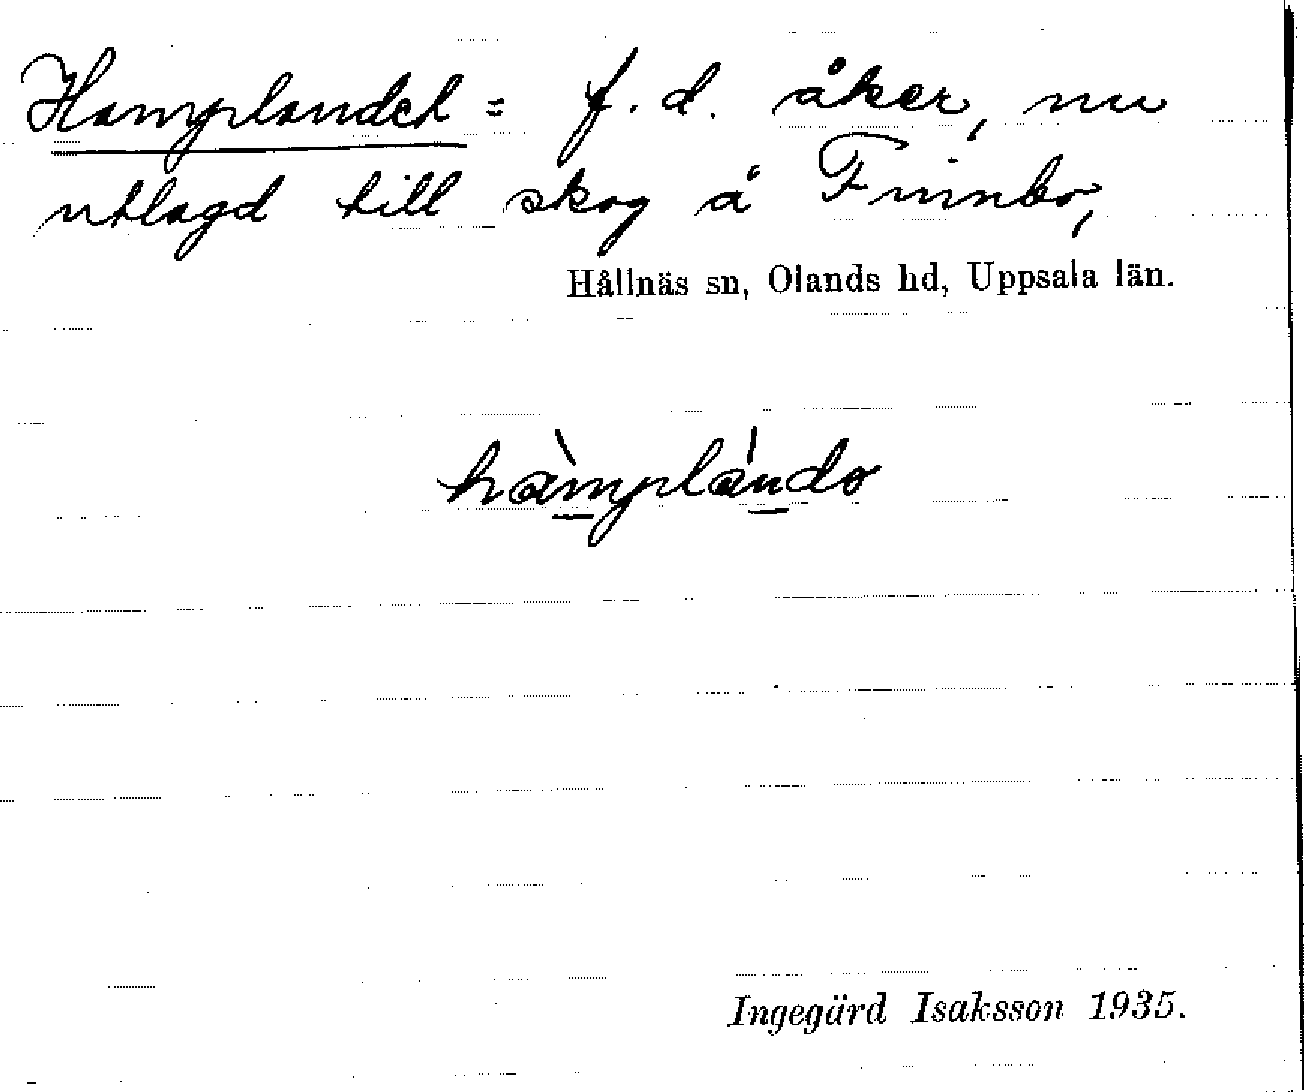 Hamplandet = f. d. åker, nu
utlagd till skog å Finnbo,
Hållnäs sn, Olands hd, Uppsala län.
hàmplándo
Ingegärd Isaksson 1935.